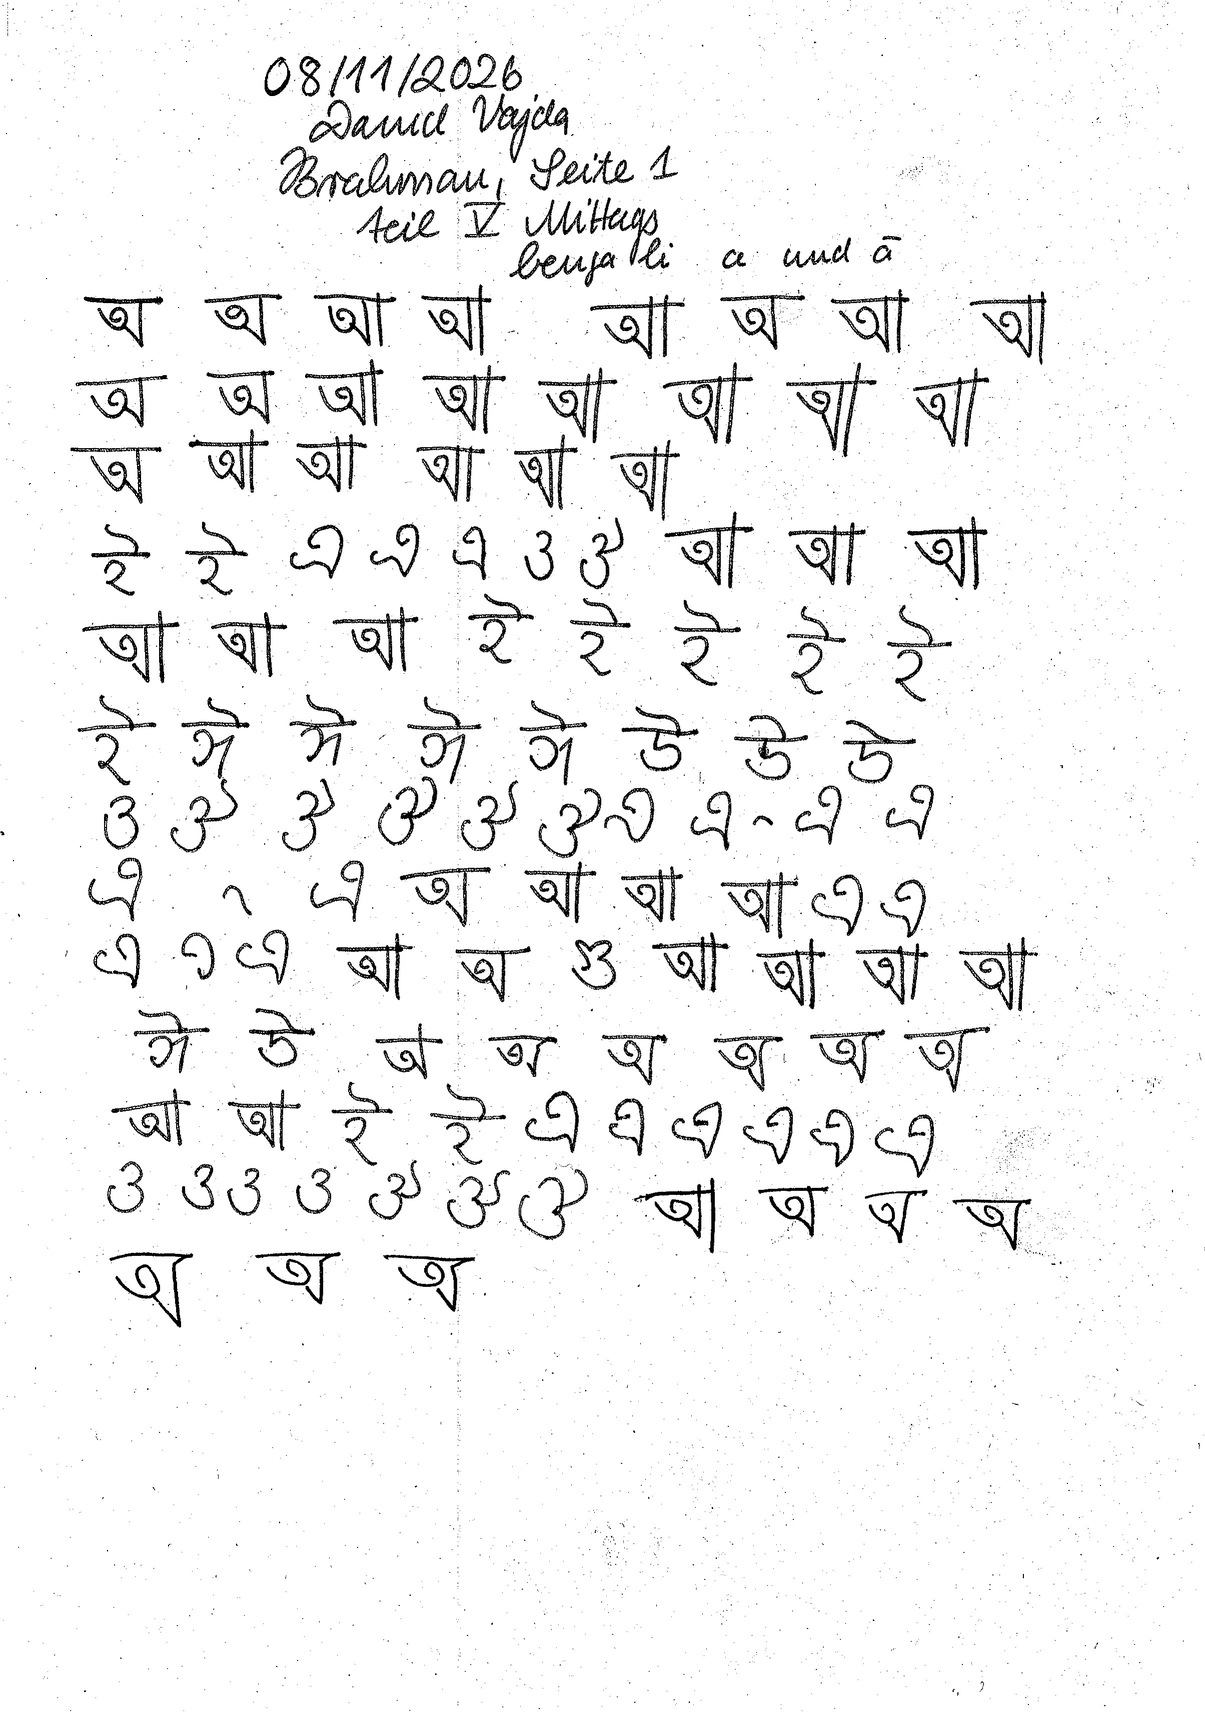 08/11/2026
Daniel Vajda
Brahman, Seite 1
teil V Mittags
bengali a und ā
অ অ আ আ আ অ আ আ
অ অ আ আ আ আ আ আ
অ আ আ আ আ আ
ই ই এ এ এ ও ঔ আ আ আ
আ আ আ ই ই ই ই ই
ই ঈ ঈ ঈ ঈ উ উ উ
ও ঔ ঔ ঔ ঔ ঔ এ এ এ এ
এ এ অ আ আ আ এ এ
এ এ আ অ আ আ আ আ
ঈ উ অ অ অ অ অ অ
আ আ ই ই এ এ এ এ এ এ
ও ও ও ও ঔ ঔ ঔ আ অ অ অ
অ অ অ